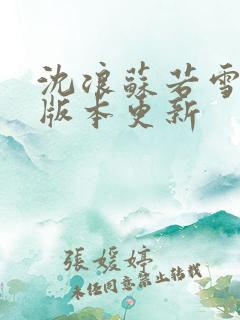 沈浪蘇若雪
版本更新
張媛婷
未经同意禁止转载